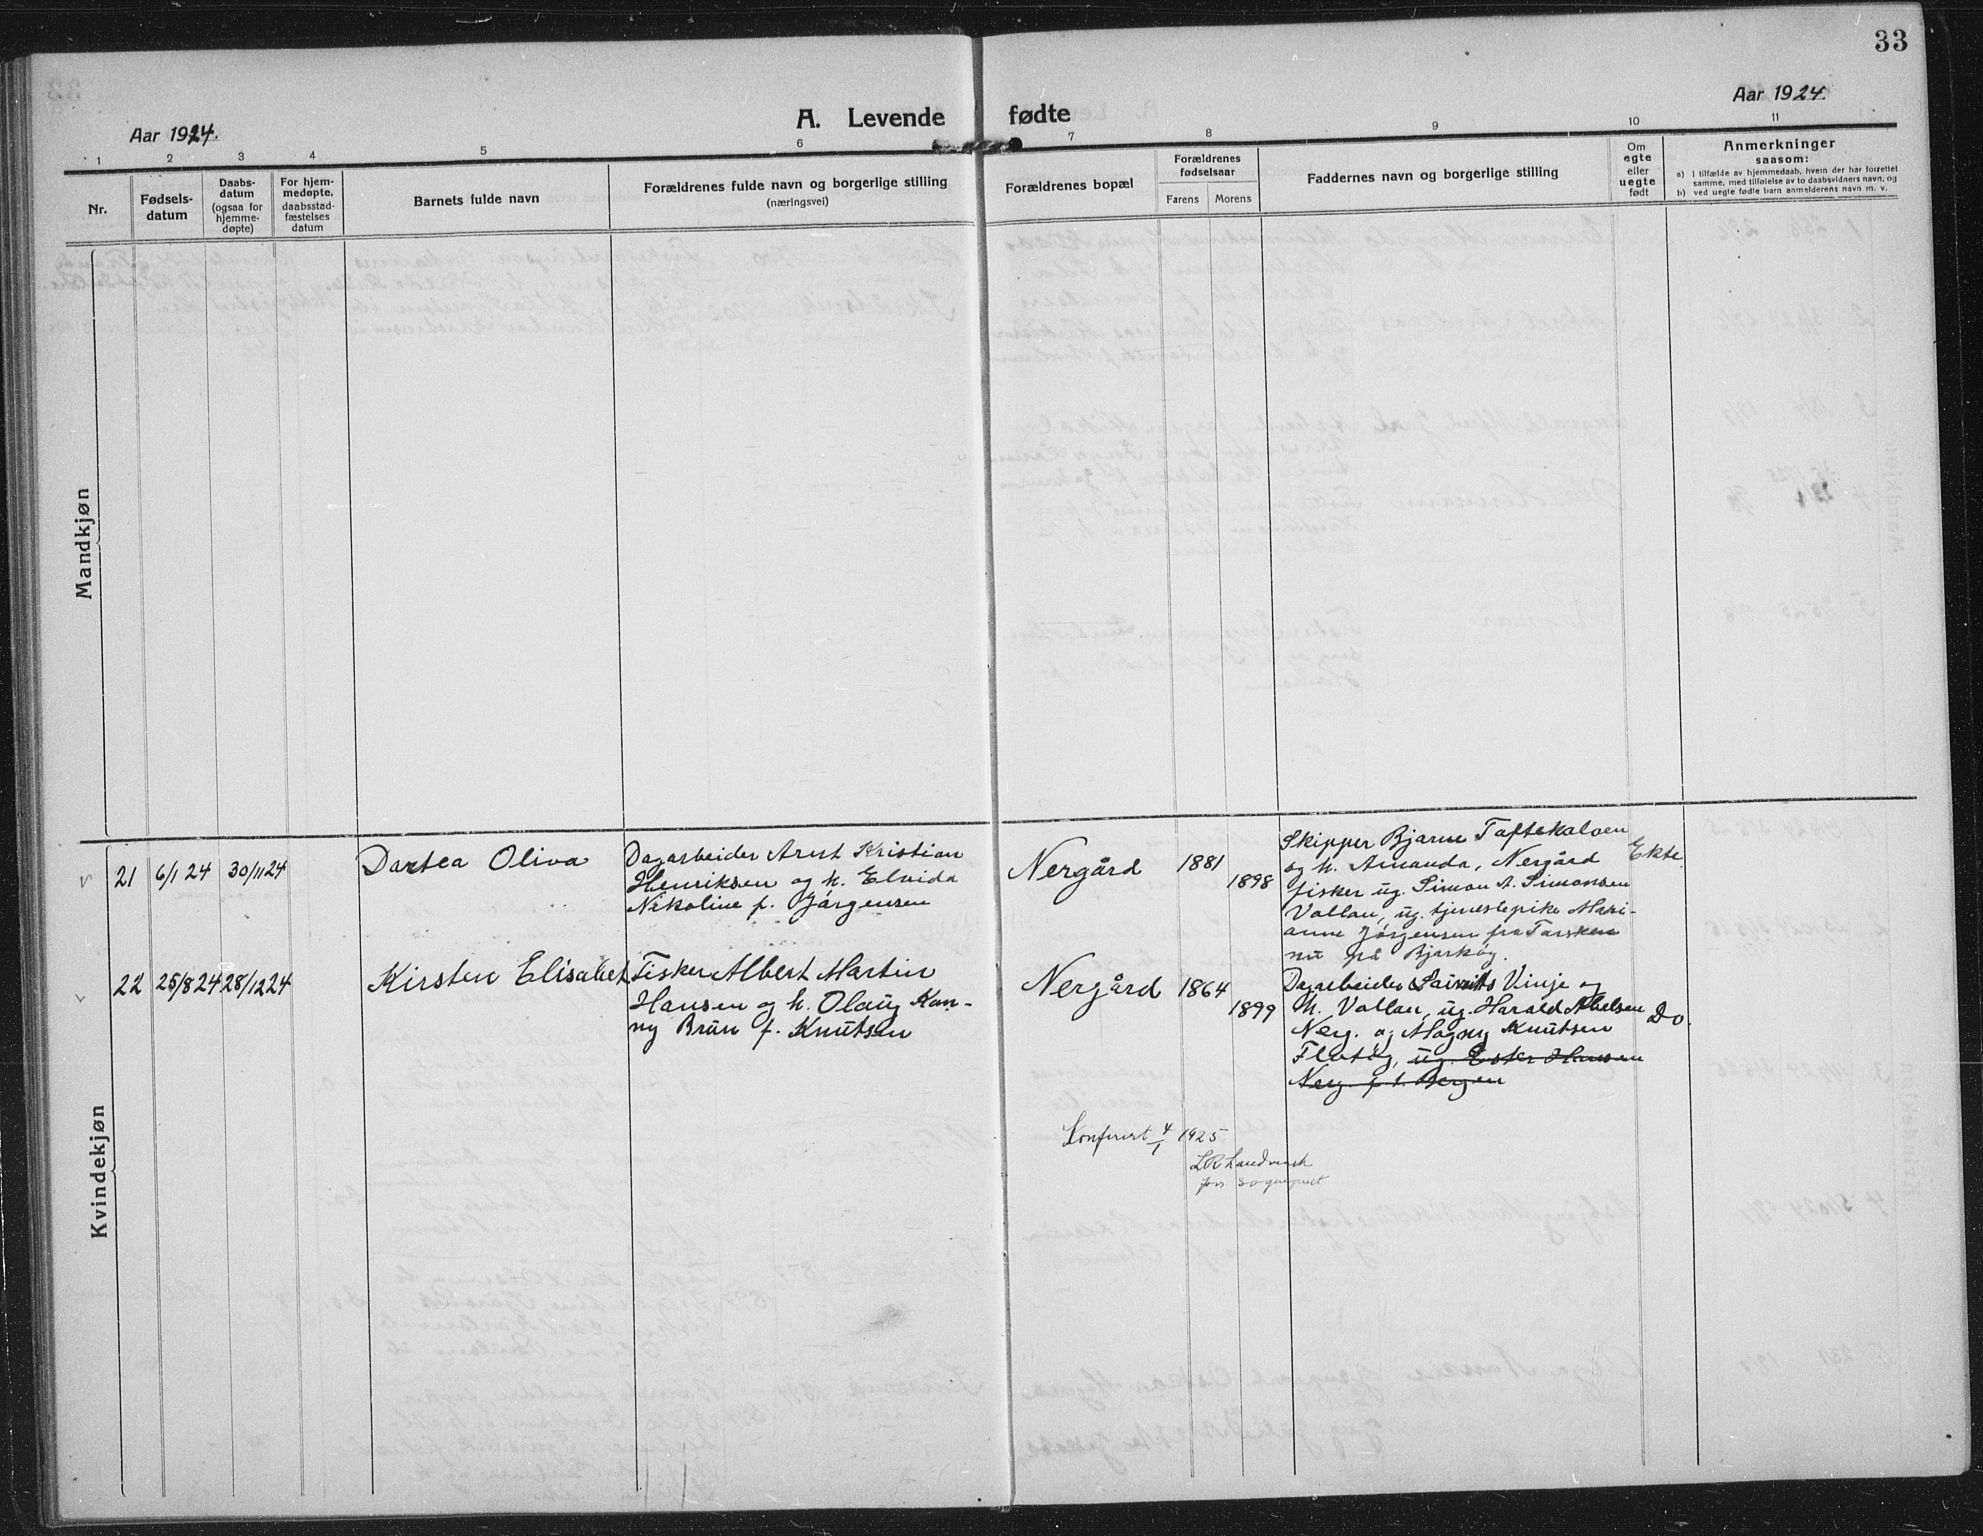 33
Aar 1924.
A. Levende fødte
Aar 1924.
1 2 3 4 5 6 7 8 9 10 11
Nr.
Fødsels-
datum
Daabs-
datum
(ogsaa for
hjemme-
døpte)
For hjem-
medøpte,
daabsstad-
fæstelses
datum
Barnets fulde navn
Forældrenes fulde navn og borgerlige stilling
(næringsvei)
Forældrenes bopæl
Forældrenes
fødselsaar
Farens Morens
Faddernes navn og borgerlige stilling
Om
egte
eller
uegte
født
Anmerkninger
saasom:
a) I tilfælde av hjemmedaab, hvem der har forrettet
samme, med tilføielse av to daabsvidners navn, og
b) ved uegte fødte barn anmelderens navn m. v.
Mandkjøn
Kvindekjøn
21 6/1 24 30/11 24
Dortea Oliva
Dagarbeider Arnt Kristian
Henriksen og h. Elvida
Nikoline f. Jørgensen
Nergård
1881
1898
Skipper Bjarne Toftekalven
og h. Amanda, Nergård
fisker ug. Simon A. Simonsen
Vollan, ug. tjenestepike Mari-
anne Jørgensen fra Torsken
nu på Bjarkøy.
Ekte
22 25/8 24 28/12 24
Kirsten Elisabet
Fisker Albert Martin
Hansen og h. Olaug Kon-
ny Brun f. Knutsen
Nergård
1864
1899
Dagarbeider Vinje og
h. Vollan, ug. Harald Abelsen
Nerg. og Magny Knutsen
Flatøy, ug. Ester Hansen
Nerg. f. t. Bergen
Do.
Konferert 4/1 1925